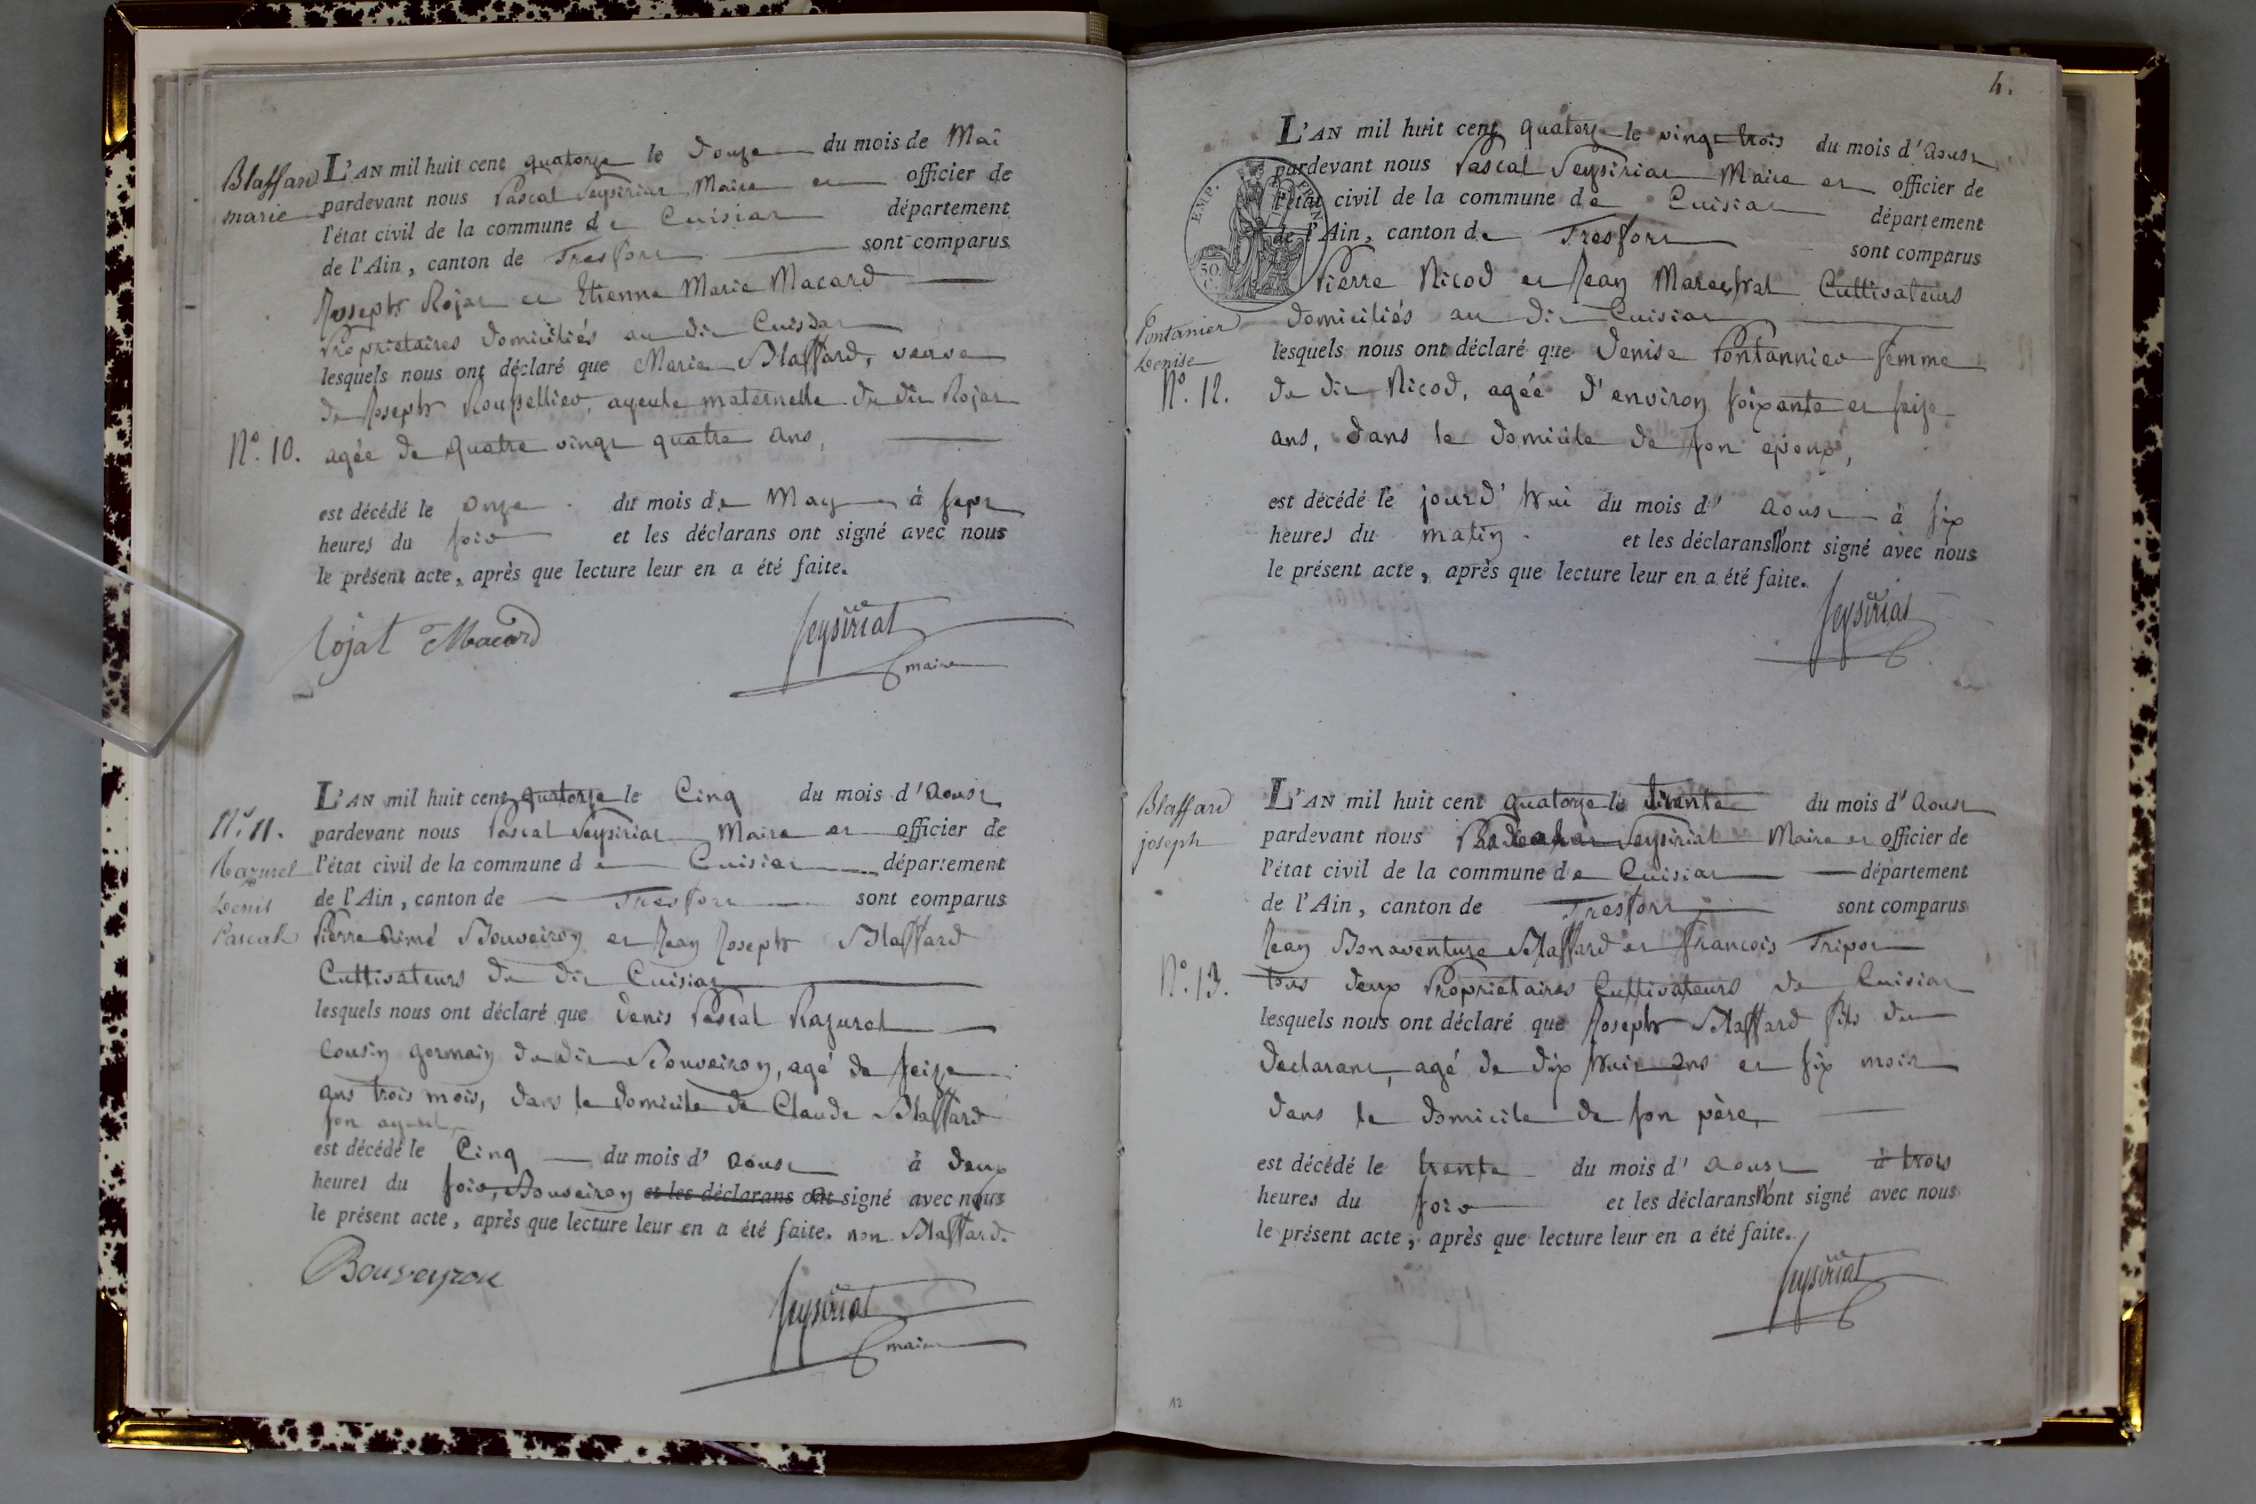 Blaffard
marie
L'AN mil huit cent quatorze le Douze du mois de Mai
pardevant nous Pascal Seysiriat Maire et officier de
l'état civil de la commune de Cuisiat département
de l'Ain, canton de Tresfort sont comparus
Joseph Rojat et Etienne Marie Macard
Proprietaires domiciliés au dit Cuisiat
lesquels nous ont déclaré que Marie Blaffard, veuve
de Joseph ayeule maternelle du dit Rojat
No. 10.
agée de quatre vingt quatre ans,
est décédé le onze du mois de May à sept
heures du soir et les déclarans ont signé avec nous
le présent acte, après que lecture leur en a été faite.
Rojat Macard
Seysiriat
maire
No. 11.
Razurel
Denis
Pascal
L'AN mil huit cent quatorze le Cinq du mois d'Aoust
pardevant nous Pascal Seysiriat Maire et officier de
l'état civil de la commune de Cuisiat département
de l'Ain, canton de Tresfort sont comparus
Pierre Aimé Bouveiron et Jean Joseph Blaffard
Cultivateurs du dit Cuisiat
lesquels nous ont déclaré que Denis Pascal Razurel
Cousin germain du dit Bouveiron, agé de seize
ans trois mois, dans le domicile de Claude Blaffard
son ayeul,
est décédé le Cinq du mois d'Aoust à deux
heures du soir, Bouveiron et les déclarans ont signé avec nous
le présent acte, après que lecture leur en a été faite. non Blaffard.
Bouveyron
Seysiriat
maire
4.
EMP. FRAN.
50.
C.
L'AN mil huit cent quatorze le vingt trois du mois d'Aoust
pardevant nous Pascal Seysiriat Maire et officier de
l'état civil de la commune de Cuisiat département
de l'Ain, canton de Tresfort sont comparus
Pierre Nicod et Jean Marechal Cultivateurs
domiciliés au dit Cuisiat
Pontanier
Denise
No. 12.
lesquels nous ont déclaré que Denise Pontannier femme
du dit Nicod, agée d'environ soixante et seize
ans, dans le domicile de son epoux,
est décédé le jourd'hui du mois d'Aoust à six
heures du matin. et les déclarans n'ont signé avec nous
le présent acte, après que lecture leur en a été faite.
Seysiriat
Blaffard
joseph
L'AN mil huit cent quatorze le trente du mois d'Aoust
pardevant nous Seysiriat Maire et officier de
l'état civil de la commune de Cuisiat département
de l'Ain, canton de Tresfort sont comparus
Jean Bonaventure Blaffard et François Tripoz
No. 13.
tous deux Proprietaires Cultivateurs de Cuisiat
lesquels nous ont déclaré que Joseph Blaffard fils du
declarant, agé de dix huit ans et six mois
dans le domicile de son père,
est décédé le trente du mois d'Aoust à trois
heures du soir et les déclarans n'ont signé avec nous
le présent acte, après que lecture leur en a été faite.
Seysiriat
12